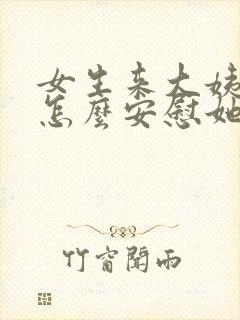 女生来大姨
怎麼安慰她
竹窗聞雨